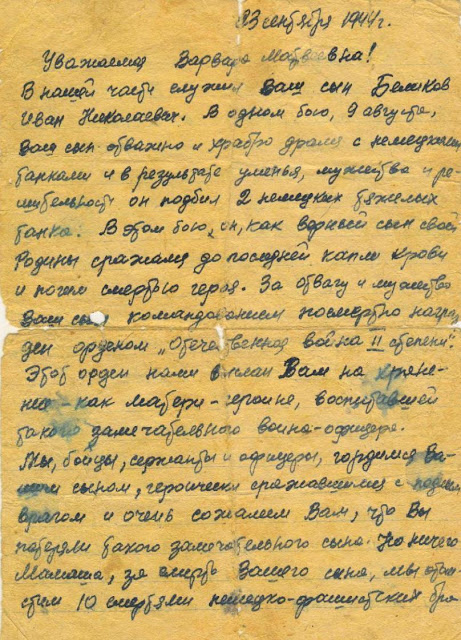 23 сентября 1944 г.
Уважаемая Варвара Матвеевна!
В нашей части служил Ваш сын Беликов
Иван Николаевич. В одном бою, 9 августа,
Ваш сын отважно и храбро дрался с немецкими
танками и в результате уменья, мужества и ре-
шительности он подбил 2 немецких тяжелых
танка. В этом бою, он, как верный сын своей
Родины сражался до последней капли крови
и погиб смертью героя. За отвагу и мужество
Ваш сын командованием посмертно награж
ден орденом „Отечественная война II степени".
Этот орден нами выслан Вам на хране-
ние как матери-героине, воспитавшей
такого замечательного воина-офицера.
Мы, бойцы, сержанты и офицеры, гордимся Ва-
шим сыном, героически сражавшимся с подлым
врагом и очень сожалеем Вам, что Вы
потеряли такого замечательного сына. Но ничего
Мамаша, за смерть Вашего сына, мы отом-
стим 10 смертями немецко-фашистских бра-